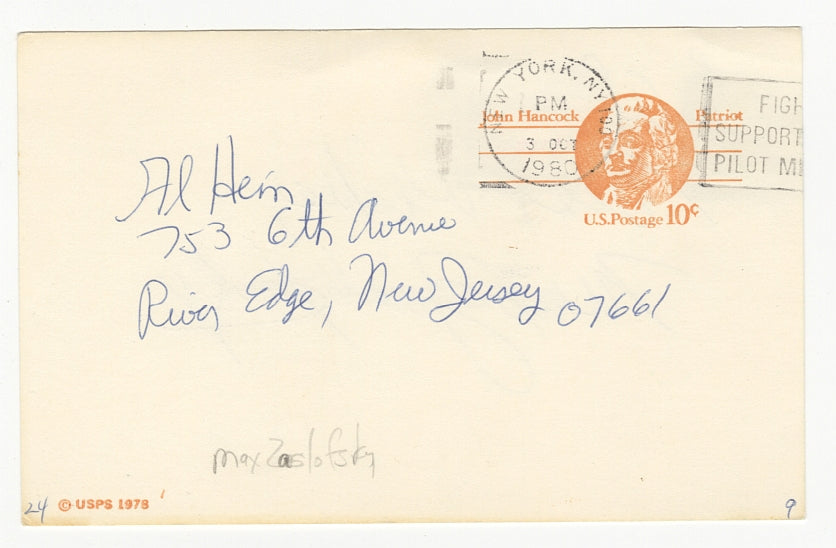 NEW YORK, NY 100
PM
3 OCT
1980
John Hancock
Patriot
FIGH
SUPPORT
PILOT M
U.S.Postage 10¢
Al Hein
753 6th Avenue
River Edge, New Jersey 07661
Max Zaslofsky
24 © USPS 1978
9